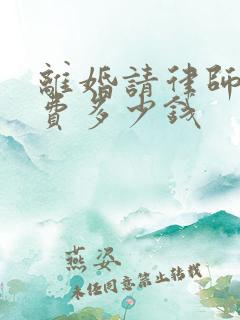 離婚請律師
費多少錢
燕姿
未經同意禁止轉載